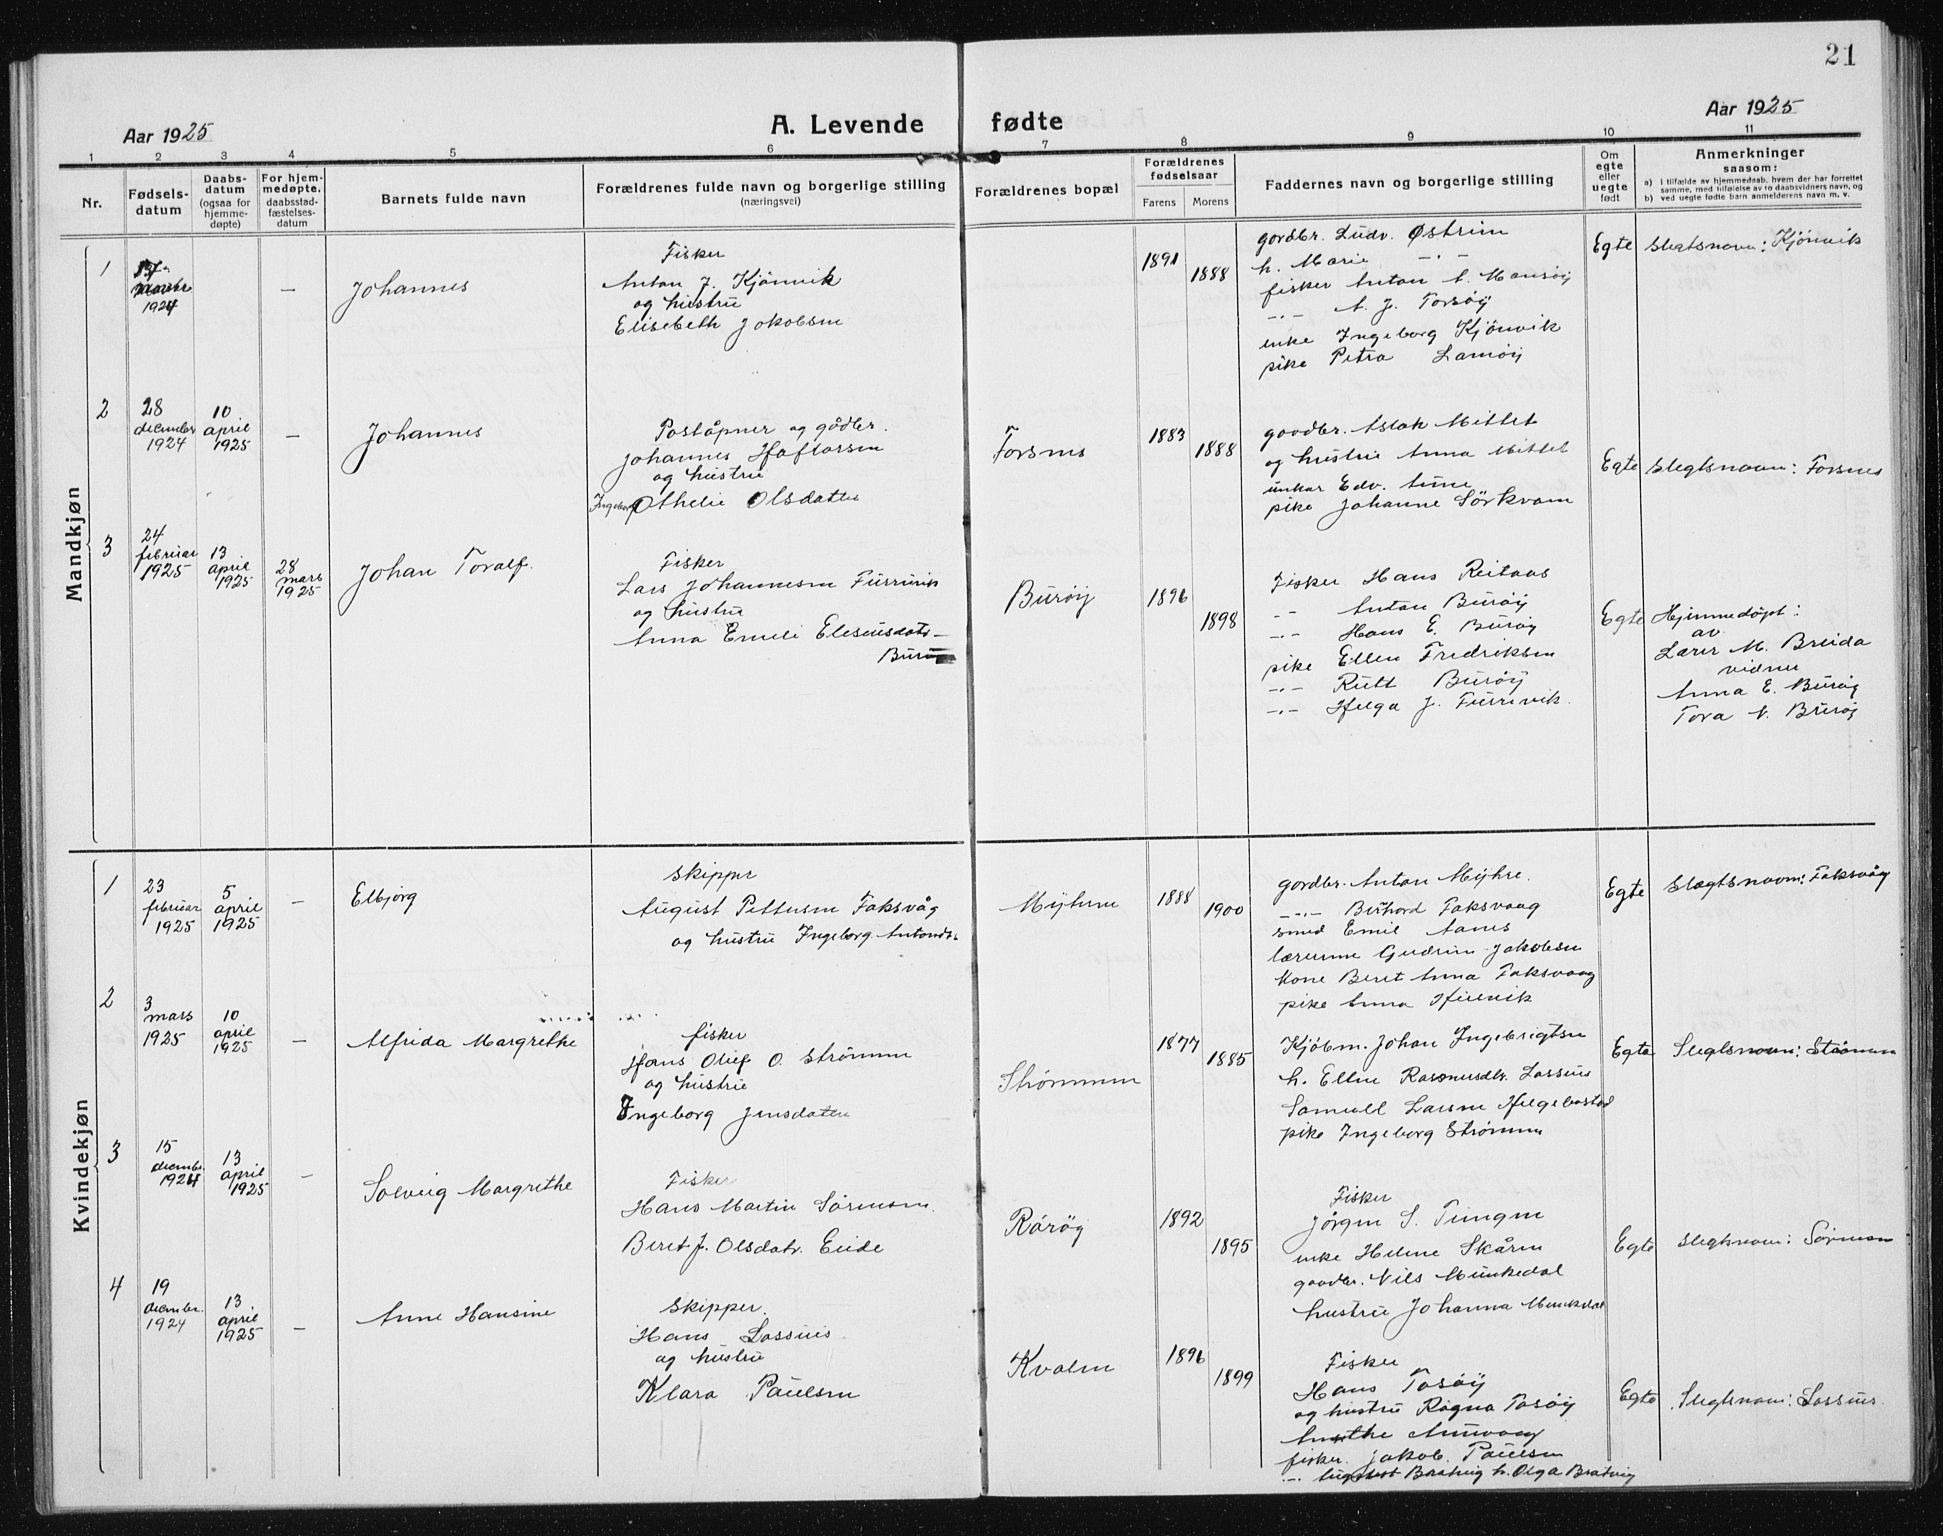 21
Aar 1925
A. Levende fødte
Aar 1925
1 2 3 4 5 6 7 8 9 10 11
Nr.
Fødsels-
datum
Daabs-
datum
(ogsaa for
hjemme-
døpte)
For hjem-
medøpte,
daabsstad-
fæstelses-
datum
Barnets fulde navn
Forældrenes fulde navn og borgerlige stilling
(næringsvei)
Forældrenes bopæl
Forældrenes
fødselsaar
Farens Morens
Faddernes navn og borgerlige stilling
Om
egte
eller
uegte
født
Anmerkninger
saasom:
a) i tilfælde av hjemmedaab, hvem der har forrettet
samme, med tilføielse av to daabsvidners navn, og
b) ved uegte fødte barn anmelderens navn m. v.
Mandkjøn
1
1924
—
Johannes
Fisker
Anton J. Kjönvik
og hustru
Elisebeth Jakobsen
1891
1888
gårdbr. Ludv. Østrem
h. Marie -"-
fisker Anton A.
-"- A. J. Torsøy
enke Ingeborg Kjönvik
pike Petra Lamøy
Egte
Slegtsnavn: Kjönvik
2
28
december
1924
10
april
1925
—
Johannes
Poståpner og gårdbr.
Johannes Haftorsen
og hustru
Ingeborg Othelie Olsdatter
Forsnes
1883
1888
gaardbr. Aslak Mittet
og hustru Anna Mittet
unkar Edv. Aune
pike Johanne Sörkvam
Egte
Slegtsnavn: Forsnes
3
24
februar
1925
13
april
1925
28
mars
1925
Johan Toralf.
Fisker
Lars Johannesen Furruvik
og hustru
Anna Emeli Eleseusdatr.
Burøy
Burøy
1896
1898
Fisker Hans Reitaas
-"- Anton Burøy
-"- Hans E. Burøy
pike Ellen Fredriksen
-"- Rutt Burøy
-"- Helga J. Furrevik.
Egte
Hjemmedöpt:
av
Lærer M. Breida
vidner
Anna E. Burøy
Tora N. Burøy
Kvindekjøn
1
23
februar
1925
5
april
1925
—
Elbjørg
Skipper
August Pettersen Faksvåg
og hustru Ingeborg Antonds.
Myhren
1888
1900
gårdbr. Anton Myhre.
-"- Berhard Faksvaag
smed Emil Aanes
lærerinne Gudrun Jakobsen
kone Beret Anna Faksvaag
pike Anna
Egte
Slægtsnavn: Faksvåg
2
3
mars
1925
10
april
1925
—
Alfrida Margrethe
fisker
Hans Oluf O. Strömmen
og hustru
Ingeborg Jensdatter
Strömmen
1877
1885
Kjöbm. Johan Ingebrigtsen
h. Ellen Rasmusdtr. Lossius
Samuell Larsen Helgebostad
pike Ingeborg Strömmen
Egte
Slegtsnavn: Strömmen
3
15
decembr.
1924
13
april
1925
—
Solveig Margrethe
Fisker
Hans Martin Sörensen.
Beret J. Olsdatr. Eide
Rårøy
1892
1895
Fisker
Jörgen S. Tungen
enke Helene Skåren
gaardbr. Nils Munkedal
hustru Johanna Munkedal
Egte
Slegtsnavn: Sörensen
4
19
decembr.
1924
13
april
1925
—
Anne Hansine
Skipper.
Hans Lossius.
og hustru
Klara Paulsen
Kvalen
1896
1899
Fisker
Hans Tosøy
og hustru Ragna Tosøy
fisker. Jakob. Paulsen
-"- August Bratvig h. Olga Bratvig
Egte
Slegtsnavn: Lossius.